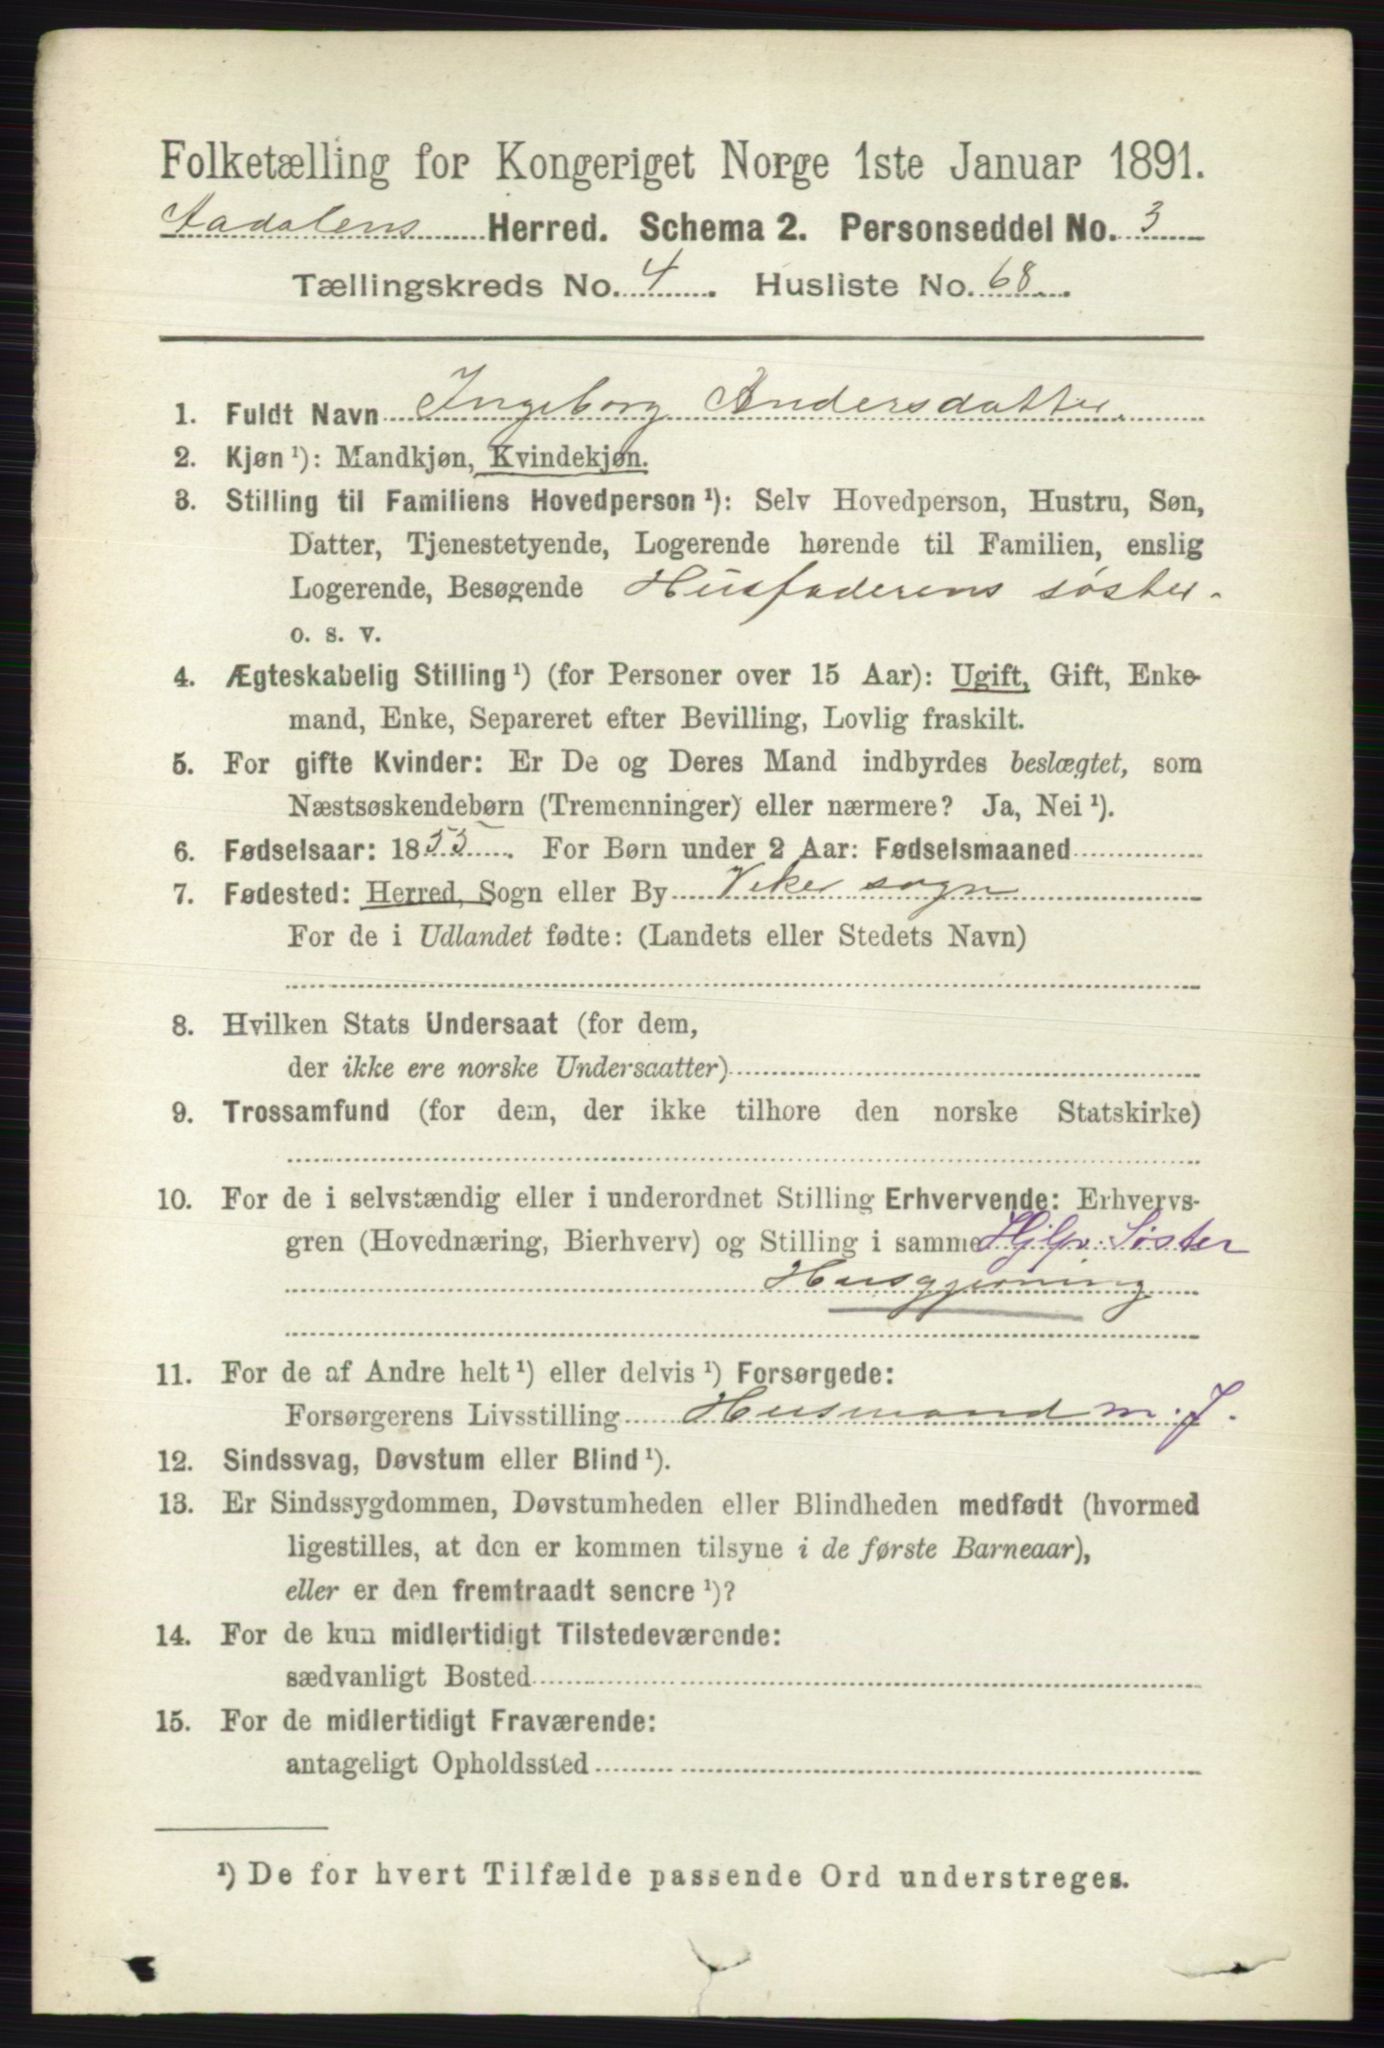 Folketælling for Kongeriget Norge 1ste Januar 1891.
Aadalens Herred. Schema 2. Personseddel No. 3
Tællingskreds No. 4. Husliste No. 68.
1. Fuldt Navn Ingeborg Andersdatter.
2. Kjøn ¹): Mandkjøn, Kvindekjøn.
3. Stilling til Familiens Hovedperson ¹): Selv Hovedperson, Hustru, Søn,
Datter, Tjenestetyende, Logerende hørende til Familien, enslig
Logerende, Besøgende Husfaderens søster.
o. s. v.
4. Ægteskabelig Stilling ¹) (for Personer over 15 Aar): Ugift, Gift, Enke-
mand, Enke, Separeret efter Bevilling, Lovlig fraskilt.
5. For gifte Kvinder: Er De og Deres Mand indbyrdes beslægtet, som
Næstsøskendebørn (Tremenninger) eller nærmere? Ja, Nei ¹).
6. Fødselsaar: 1855. For Børn under 2 Aar: Fødselsmaaned
7. Fødested: Herred, Sogn eller By Viker sogn
For de i Udlandet fødte: (Landets eller Stedets Navn)
8. Hvilken Stats Undersaat (for dem,
der ikke ere norske Undersaatter)
9. Trossamfund (for dem, der ikke tilhøre den norske Statskirke)
10. For de i selvstændig eller i underordnet Stilling Erhvervende: Erhvervs-
gren (Hovednæring, Bierhverv) og Stilling i samme Hjlp. Søster
Husgjerning
11. For de af Andre helt ¹) eller delvis ¹) Forsørgede:
Forsørgerens Livsstilling Husmand m. J.
12. Sindssvag, Døvstum eller Blind ¹).
13. Er Sindssygdommen, Døvstumheden eller Blindheden medfødt (hvormed
ligestilles, at den er kommen tilsyne i de første Barneaar),
eller er den fremtraadt senere ¹)?
14. For de kun midlertidigt Tilstedeværende:
sædvanligt Bosted
15. For de midlertidigt Fraværende:
antageligt Opholdssted
¹) De for hvert Tilfælde passende Ord understreges.